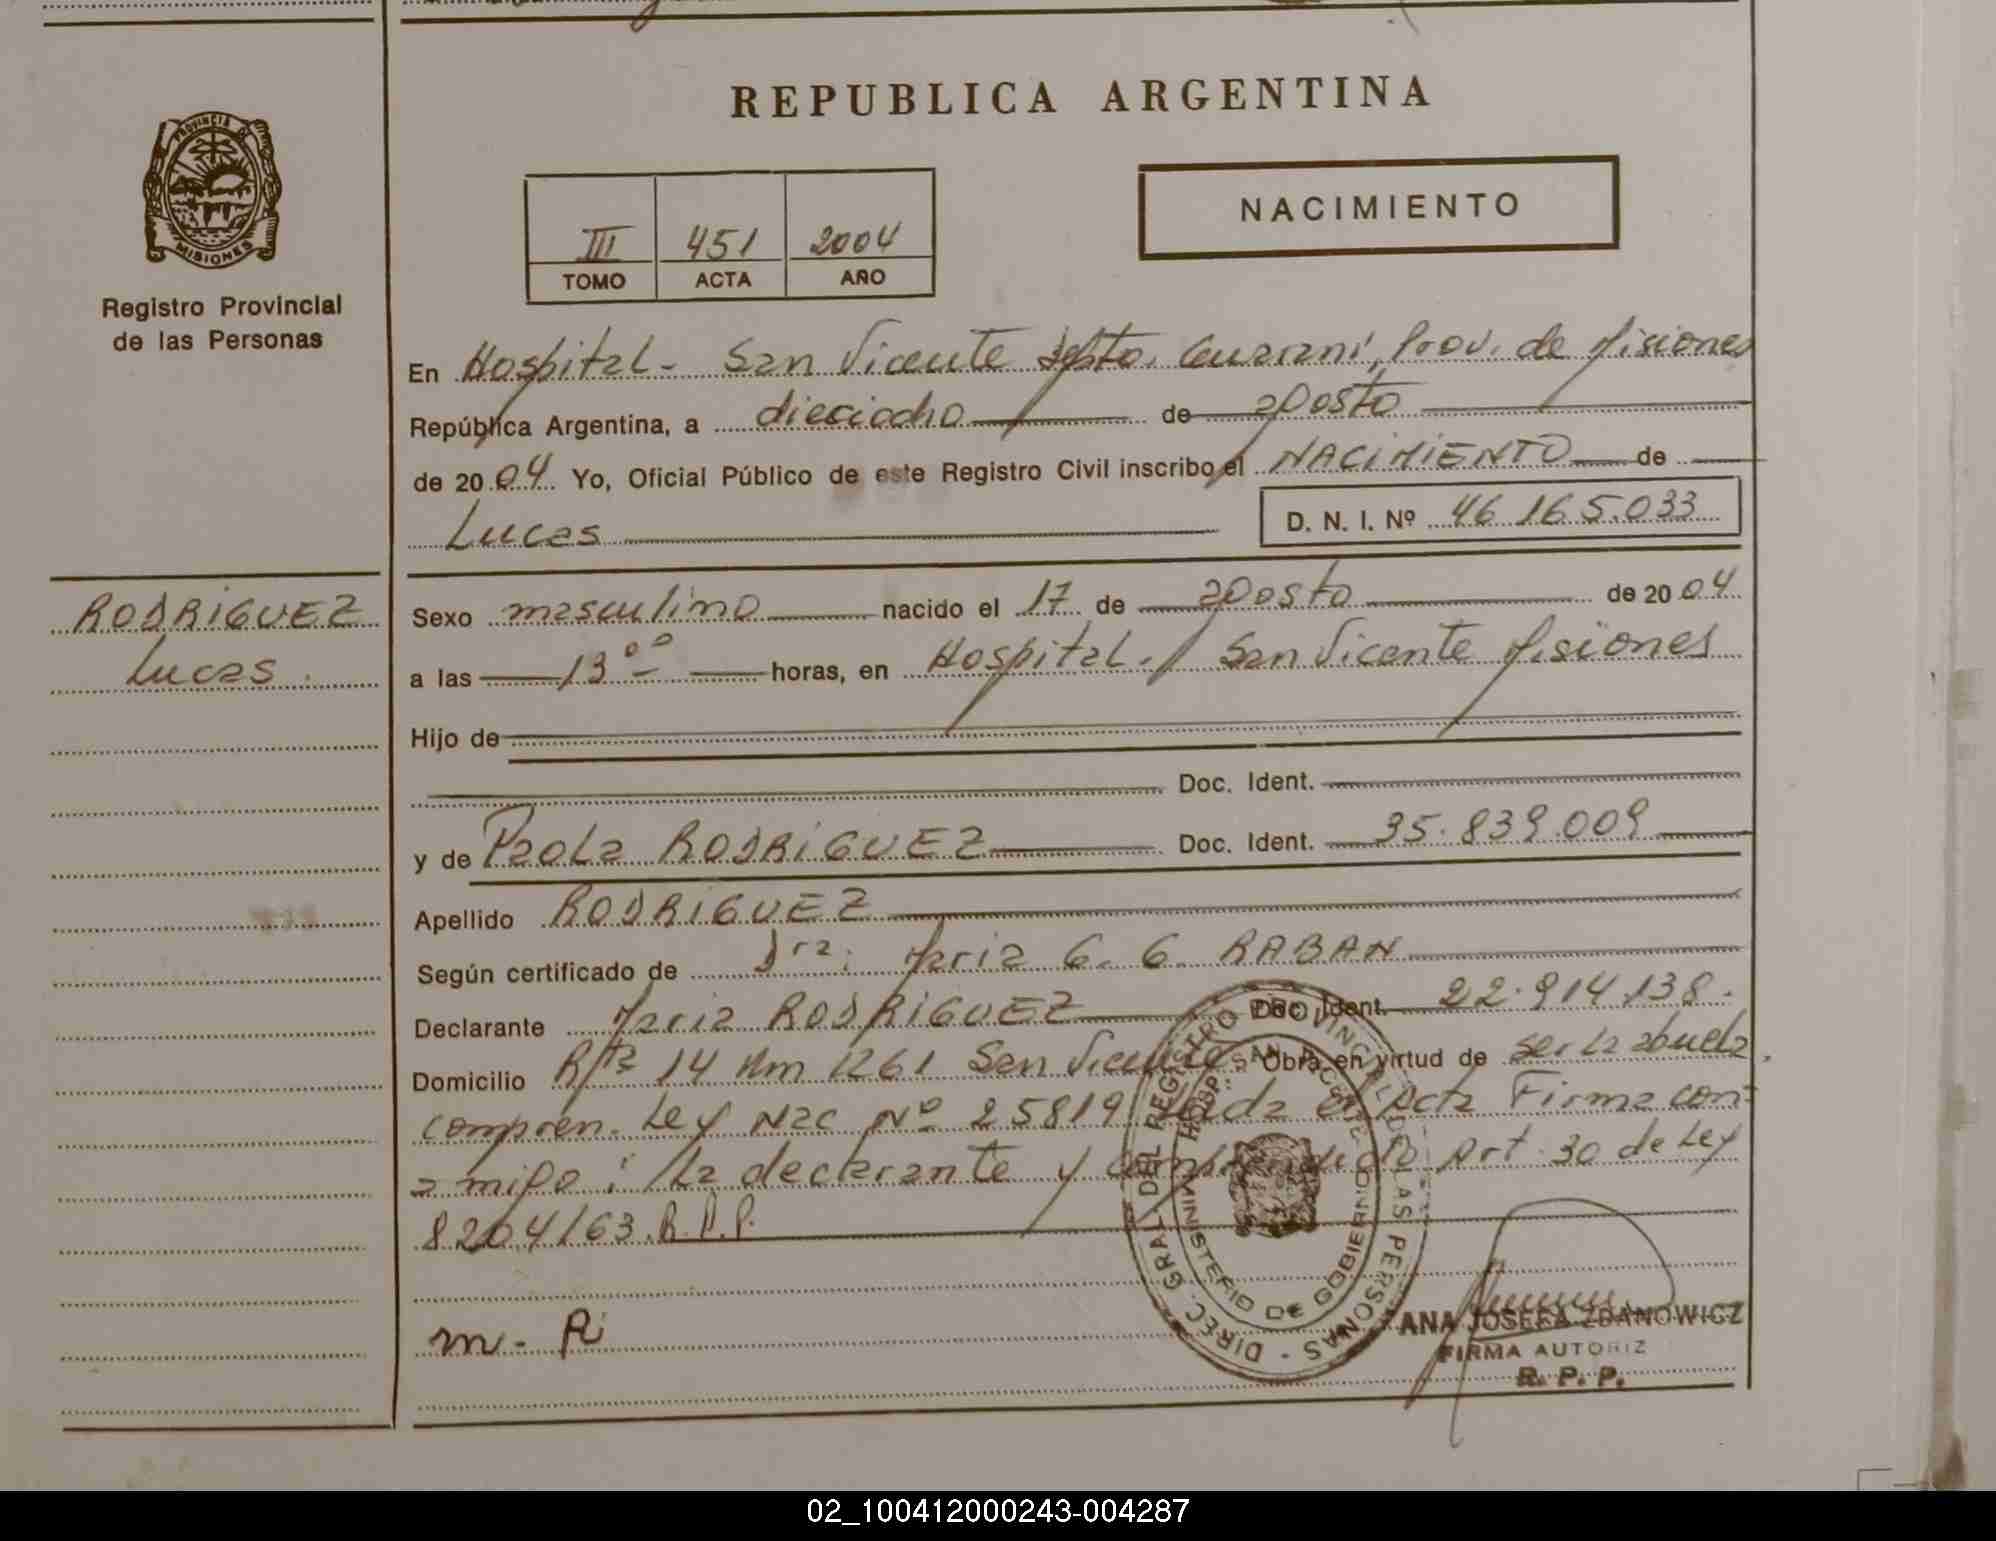 REPUBLICA ARGENTINA
PROVINCIA DE MISIONES
Registro Provincial
de las Personas
III 451 2004
TOMO ACTA AÑO
NACIMIENTO
En Hospital - San Vicente Dpto. Guarani, Prov. de Misiones
República Argentina, a dieciocho de agosto
de 2004 Yo, Oficial Público de este Registro Civil inscribo el NACIMIENTO de
Lucas D. N. I. Nº 46.165.033
RODRIGUEZ
Lucas.
Sexo masculino nacido el 17 de agosto de 2004
a las 13 oo horas, en Hospital. San Vicente Misiones
Hijo de
Doc. Ident.
y de Paola RODRIGUEZ Doc. Ident. 35.839.009
Apellido RODRIGUEZ
Según certificado de Dra: Maria G. G. RABAN
Declarante Maria RODRIGUEZ Doc. Ident. 22.914.138.
Domicilio Rta 14 Km 1261 San Vicente Obra en virtud de ser la abuela,
compren. Ley Nac Nº 25819 Leida el Acta Firma con-
migo: La declarante y Art. 30 de Ley
8204/63.R.P.P.
m. R
DIREC. GRAL. DEL REGISTRO PROVINCIAL DE LAS PERSONAS
HOSP. SAN VICENTE
MINISTERIO DE GOBIERNO
ANA JOSEFA ZDANOWICZ
FIRMA AUTORIZ
R. P. P.
02_100412000243-004287